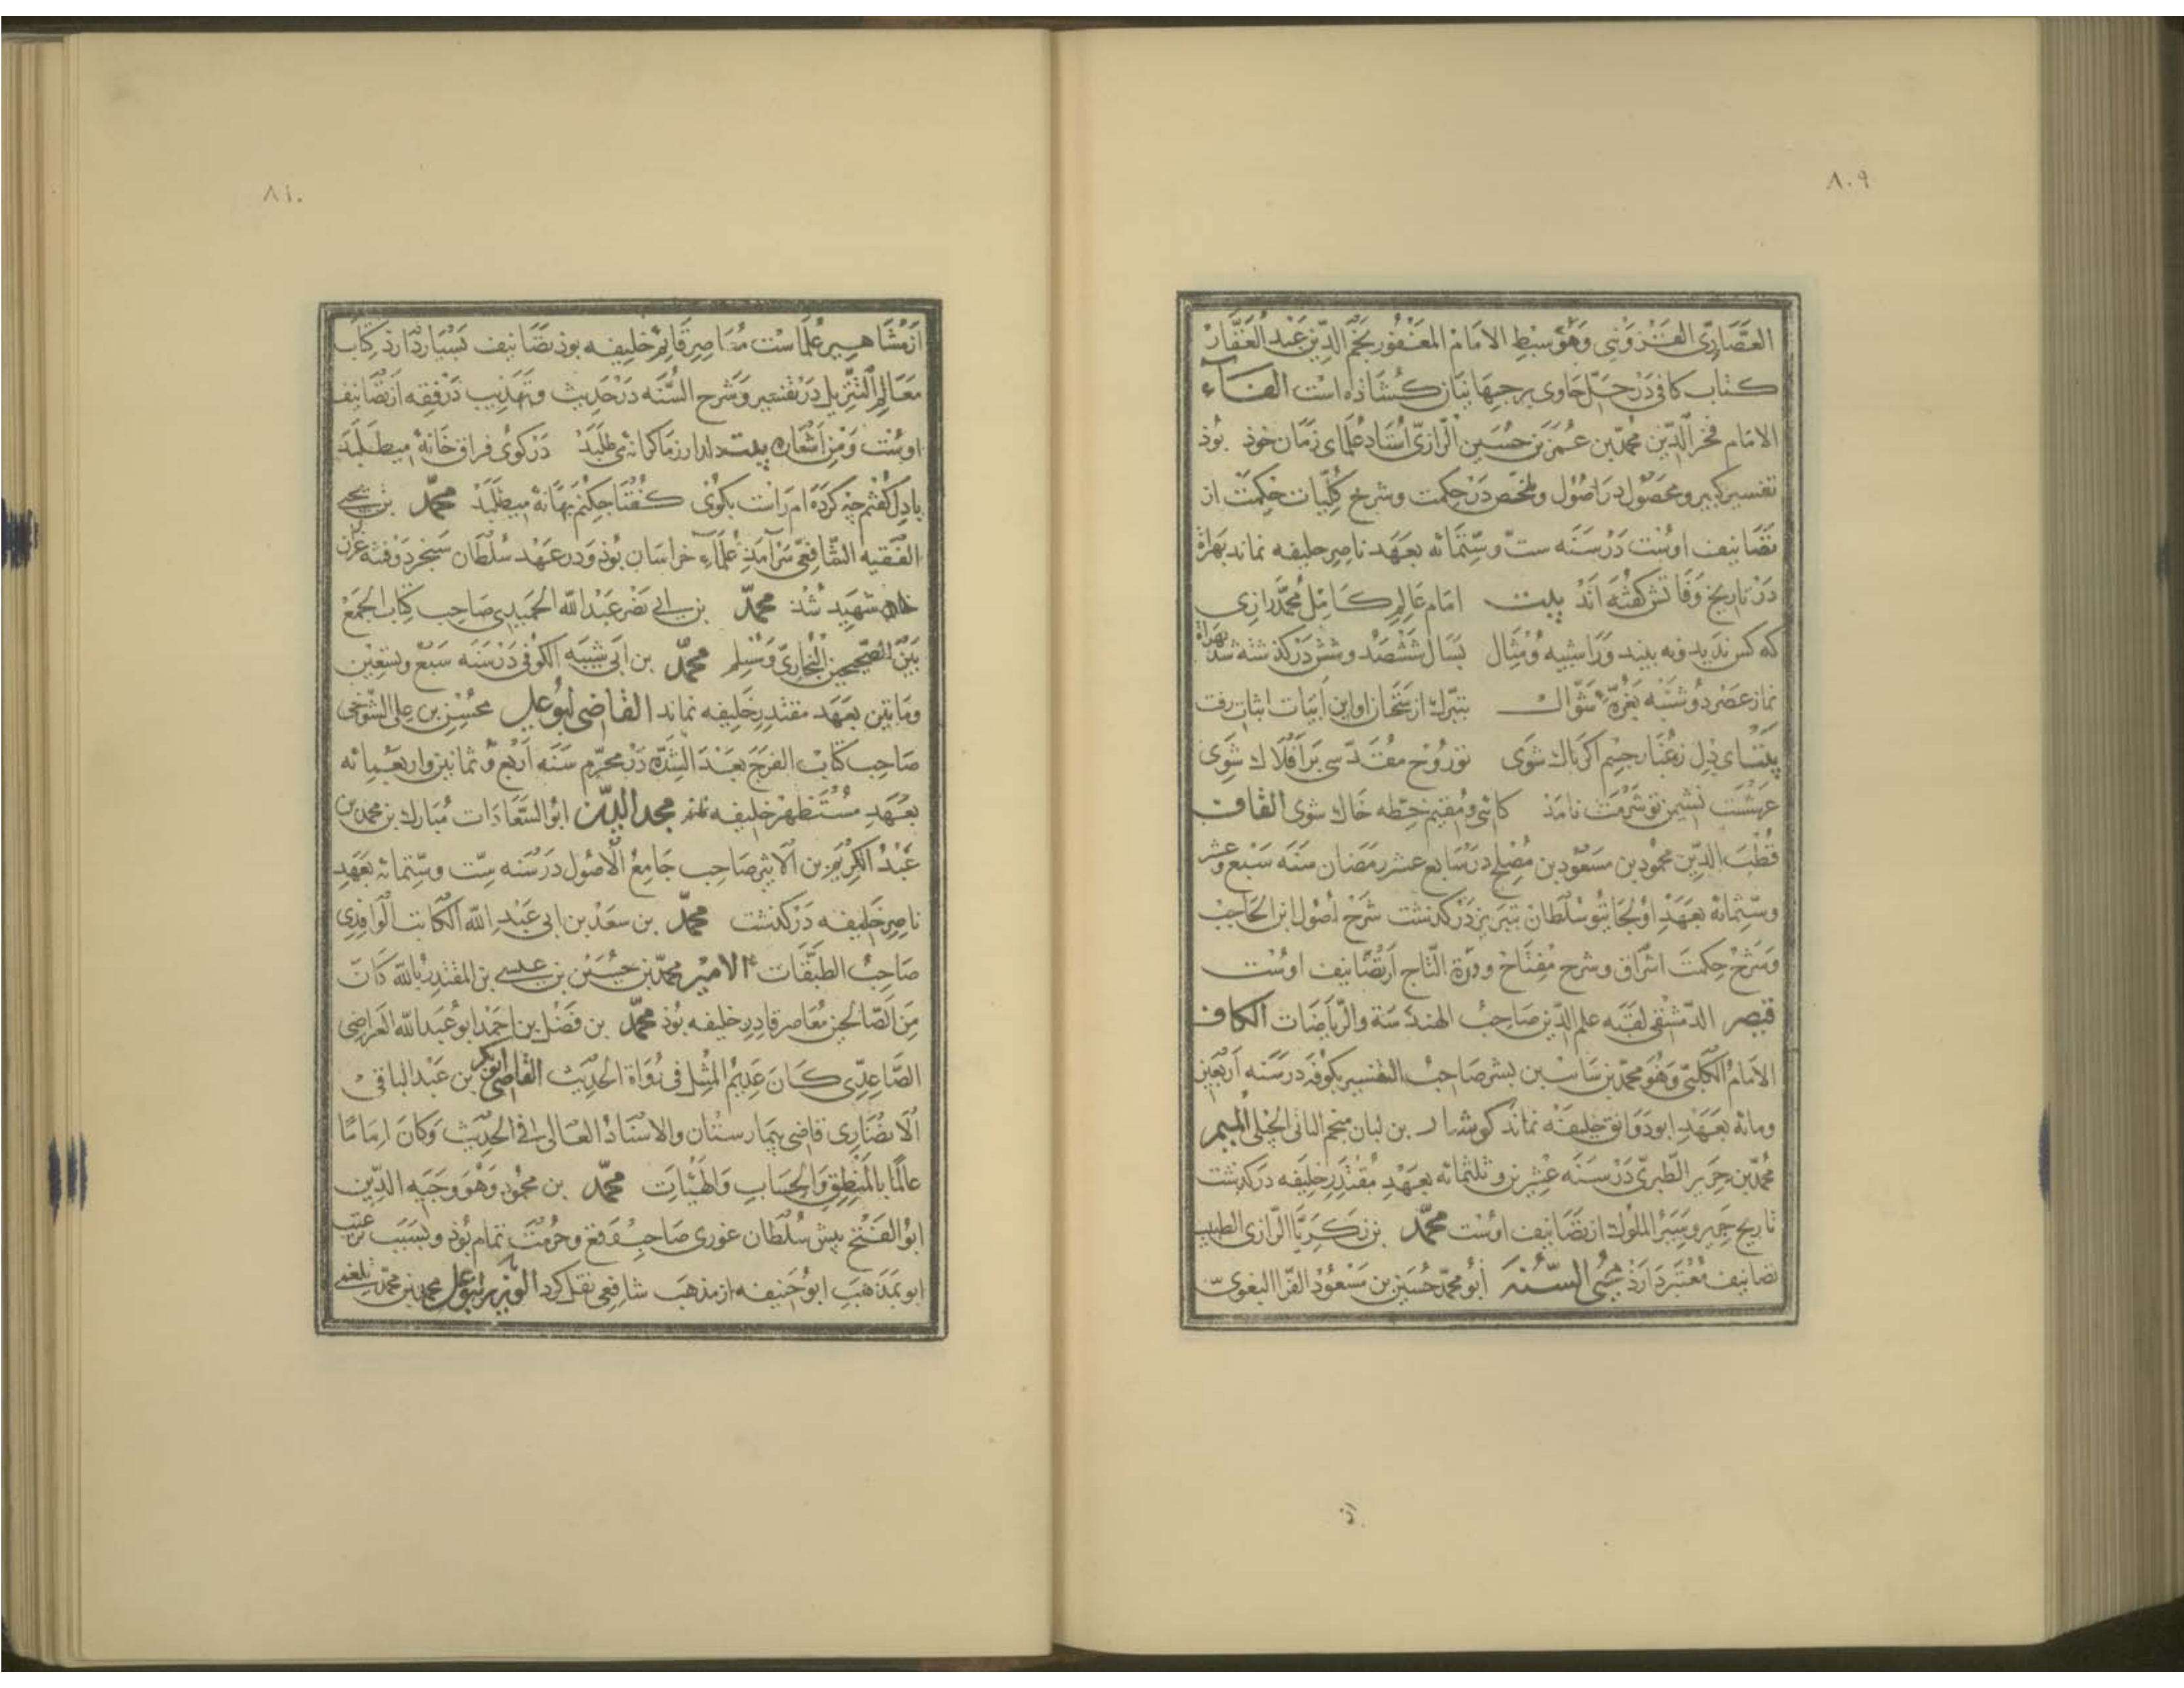 ٨٠٩
العصاری القزوینی وهو سبط الامام المغفور نجم الدین عبد الغفار
کتاب کافی در حل حاوی بر جهانیان کشاده است الفاء
الامام فخر الدین محمد بن عمر بن حسین الرازی استاد علمای زمان خود بوذ
تفسیر کبیر و محصول در اصول و ملخص در حکمت و شرح کلیات حکمت از
تصانیف اوست در سنه ست و ستمائه بعهد ناصر خلیفه نماند بهراة
در تاریخ وفاتش کفته اند بیت امام عالم کامل محمد رازی
که کس ندید و نه بیند ورا شبیه و مثال بسال ششصد و شش درکذشته شد بهراة
نماز عصر دوشنبه بغرّه شوال بتبرک از سخنان او این ابیات اثبات رفت
بیت ای دل ز غبار جسم اکر پاک شوی تو روح مقدسی بر افلاک شوی
عرشست نشیمن تو شرمت نامذ کائی و مقیم خطه خاک شوی القاف
قطب الدین محمود بن مسعود بن مصلح در سابع عشر رمضان سنه سبع و عشر
و ستمائه بعهد اولجایتو سلطان بتبریز درکذشت شرح اصول ابن الحاجب
و شرح حکمت اشراق و شرح مفتاح و درة التاج از تصانیف اوست
قیصر الدمشقی لقبه علم الدین صاحب الهندسة والریاضات الکاف
الامام الکلبی وهو محمد بن سائب بن بشر صاحب التفسیر بکوفه در سنه اربعین
ومائه بعهد ابو دوانق خلیفه نماند کوشیار بن لبان منجم الجیلی المیم
محمد بن جریر الطبری در سنه عشرین و ثلثمائه بعهد مقتدر خلیفه درکذشت
تاریخ جریر و سیر الملوک از تصانیف اوست محمد بن زکریا الرازی الطبیب
تصانیف معتبر دارذ محیی السنه ابو محمد حسین بن مسعود الفرا البغوی
از
٨١٠
از مشاهیر علماست معاصر قائم خلیفه بوذ تصانیف بسیار دارذ کتاب
معالم التنزیل در تفسیر و شرح السنه در حدیث و تهذیب در فقه از تصانیف
اوست ومن اشعاره بیت دلدار ز ما کرانه می طلبد در کوی فراق خانه میطلبد
با دل کفتم چه کرده ام راست بکوی کفتا چکنم بهانه میطلبد محمد بن یحیی
الفقیه الشافعی سرآمد علماء خراسان بوذ و در عهد سلطان سنجر در فتنه غزان
شهید شذ محمد بن ابی نصر عبد الله الحمیدی صاحب کتاب الجمع
بین الصحیحین البخاری و مسلم محمد بن ابی شیبه الکوفی در سنه سبع وتسعین
ومایتین بعهد مقتدر خلیفه نماند القاضی ابو علی محسن بن علی التنوخی
صاحب کتاب الفرج بعد الشدة در محرم سنه اربع و ثمانین واربعمائه
بعهد مستظهر خلیفه نماند مجد الدین ابو السعادات مبارک بن محمد بن
عبد الکریم بن الاثیر صاحب جامع الاصول در سنه ست وستمائه بعهد
ناصر خلیفه درکذشت محمد بن سعد بن ابی عبد الله الکاتب الواقدی
صاحب الطبقات الامیر محمد بن حسین بن عیسی بن المقتدر بالله کان
من الصالحین معاصر قادر خلیفه بوذ محمد بن فضل بن احمد ابو عبد الله الفراضی
الصاعدی کان عدیم المثل فی رواة الحدیث القاضی ابو بکر بن عبد الباقی
الانصاری قاضی بیمارستان والاستاد العالی فی الحدیث وکان اماما
عالما بالمنطق والحساب والهیئات محمد بن محمود وهو وجیه الدین
ابو الفتح پیش سلطان غوری صاحب وقع و حرمت تمام بوذ و بسبب
او بمذهب ابو حنیفه از مذهب شافعی نقل کرد الوزیر ابو علی محمد بن محمد بلعمی